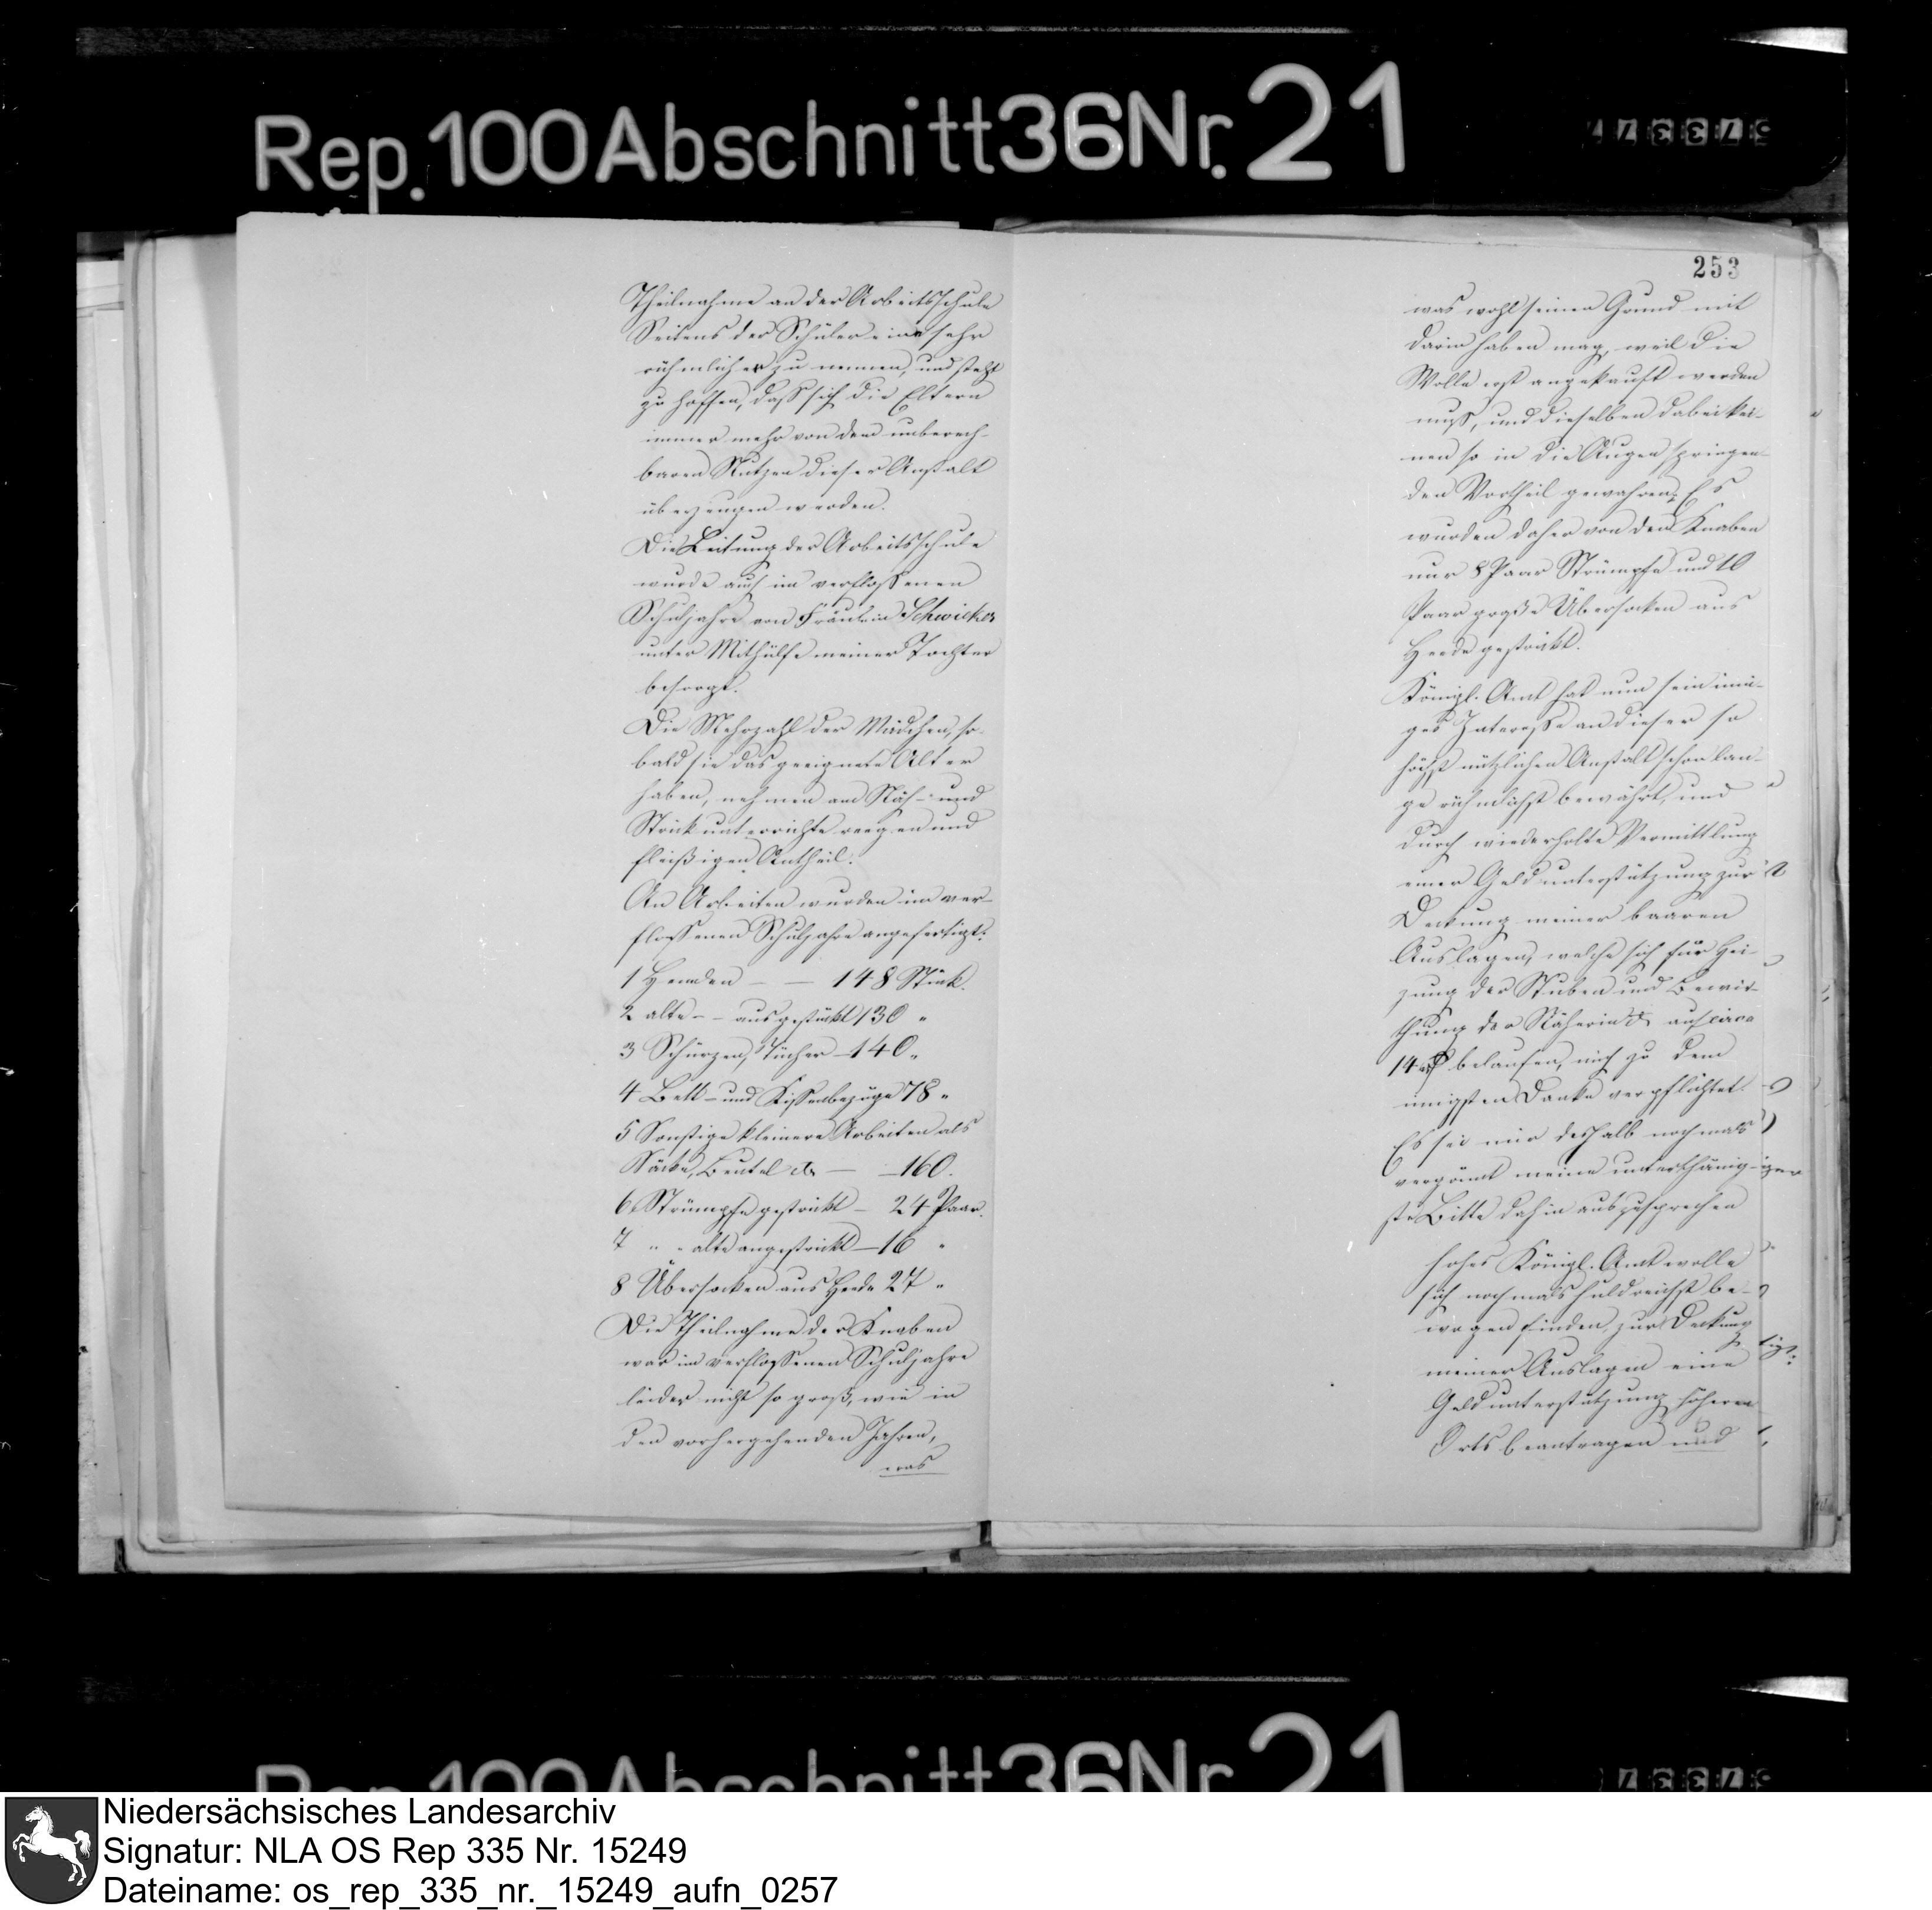 Rep. 100 Abschnitt 36 Nr. 21
Theilnahme an der Arbeitsschule
Seitens der Schüler eine sehr
rühmliche zu nennen, und steht
zu hoffen, daß sich die Eltern
immer mehr von dem unberech-
baren Nutzen dieser Anstalt
überzeugen werden.
Die Leitung der Arbeitsschule
wurde auch im verflossenen
Schuljahre von Fräulein Schwicker
unter Mithülfe meiner Tochter
besorgt.
Die Mehrzahl der Mädchen, so-
bald sie das geeignete Alter
haben, nehmen am Näh- und
Strickunterrichte regen und
fleißigen Antheil.
An Arbeiten wurden im ver-
flossenen Schuljahre angefertigt:
1 Hemden – – 148 Stück.
2 alte – – ausgestückt 130 "
3 Schürzen, Tücher – 140 "
4 Bett- und Kissenbezüge 78 "
5 Sonstige kleinere Arbeiten als
Säcke, Beutel etc – – 160.
6 Strümpfe gestrickt – 24 Paar.
7 " " alte angestrickt – 16 "
8 Übersocken aus Heede 27 "
Die Theilnahme der Knaben
war im verflossenen Schuljahre
leider nicht so groß, wie in
den vorhergehenden Jahren,
was
253
was wohl seinen Grund mit
darin haben mag, weil die
Wolle erst angekauft werden
muß, und dieselben dabei kei-
nen so in die Augen springen-
den Vortheil gewahren. Es
wurden daher von den Knaben
nur 8 Paar Strümpfe und 10
Paar große Übersocken aus
Heede gestrickt.
Königl. Amt hat nun sein inni-
ges Interesse an dieser so
höchst nützlichen Anstalt schon lan-
ge rühmlichst bewährt, und
durch wiederholte Vermittlung
einer Geldunterstützung zur
Deckung meiner baaren
Auslagen, welche sich für Hei-
zung der Stuben und Bewir-
thung der Näherin etc auf circa
14 rℓ belaufen, mich zu dem
innigsten Danke verpflichtet.
Es sei mir deshalb nochmals
vergönnt meine unterthänig-
ste Bitte dahin auszusprechen
hohes Königl. Amt wolle
sich nochmals huldreichst be-
wogen finden, zur Deckung
meiner Auslagen eine
Geldunterstützung höheren
Orts beantragen und
Rep. 100 Abschnitt 36 Nr. 21
Niedersächsisches Landesarchiv
Signatur: NLA OS Rep 335 Nr. 15249
Dateiname: os_rep_335_nr._15249_aufn_0257